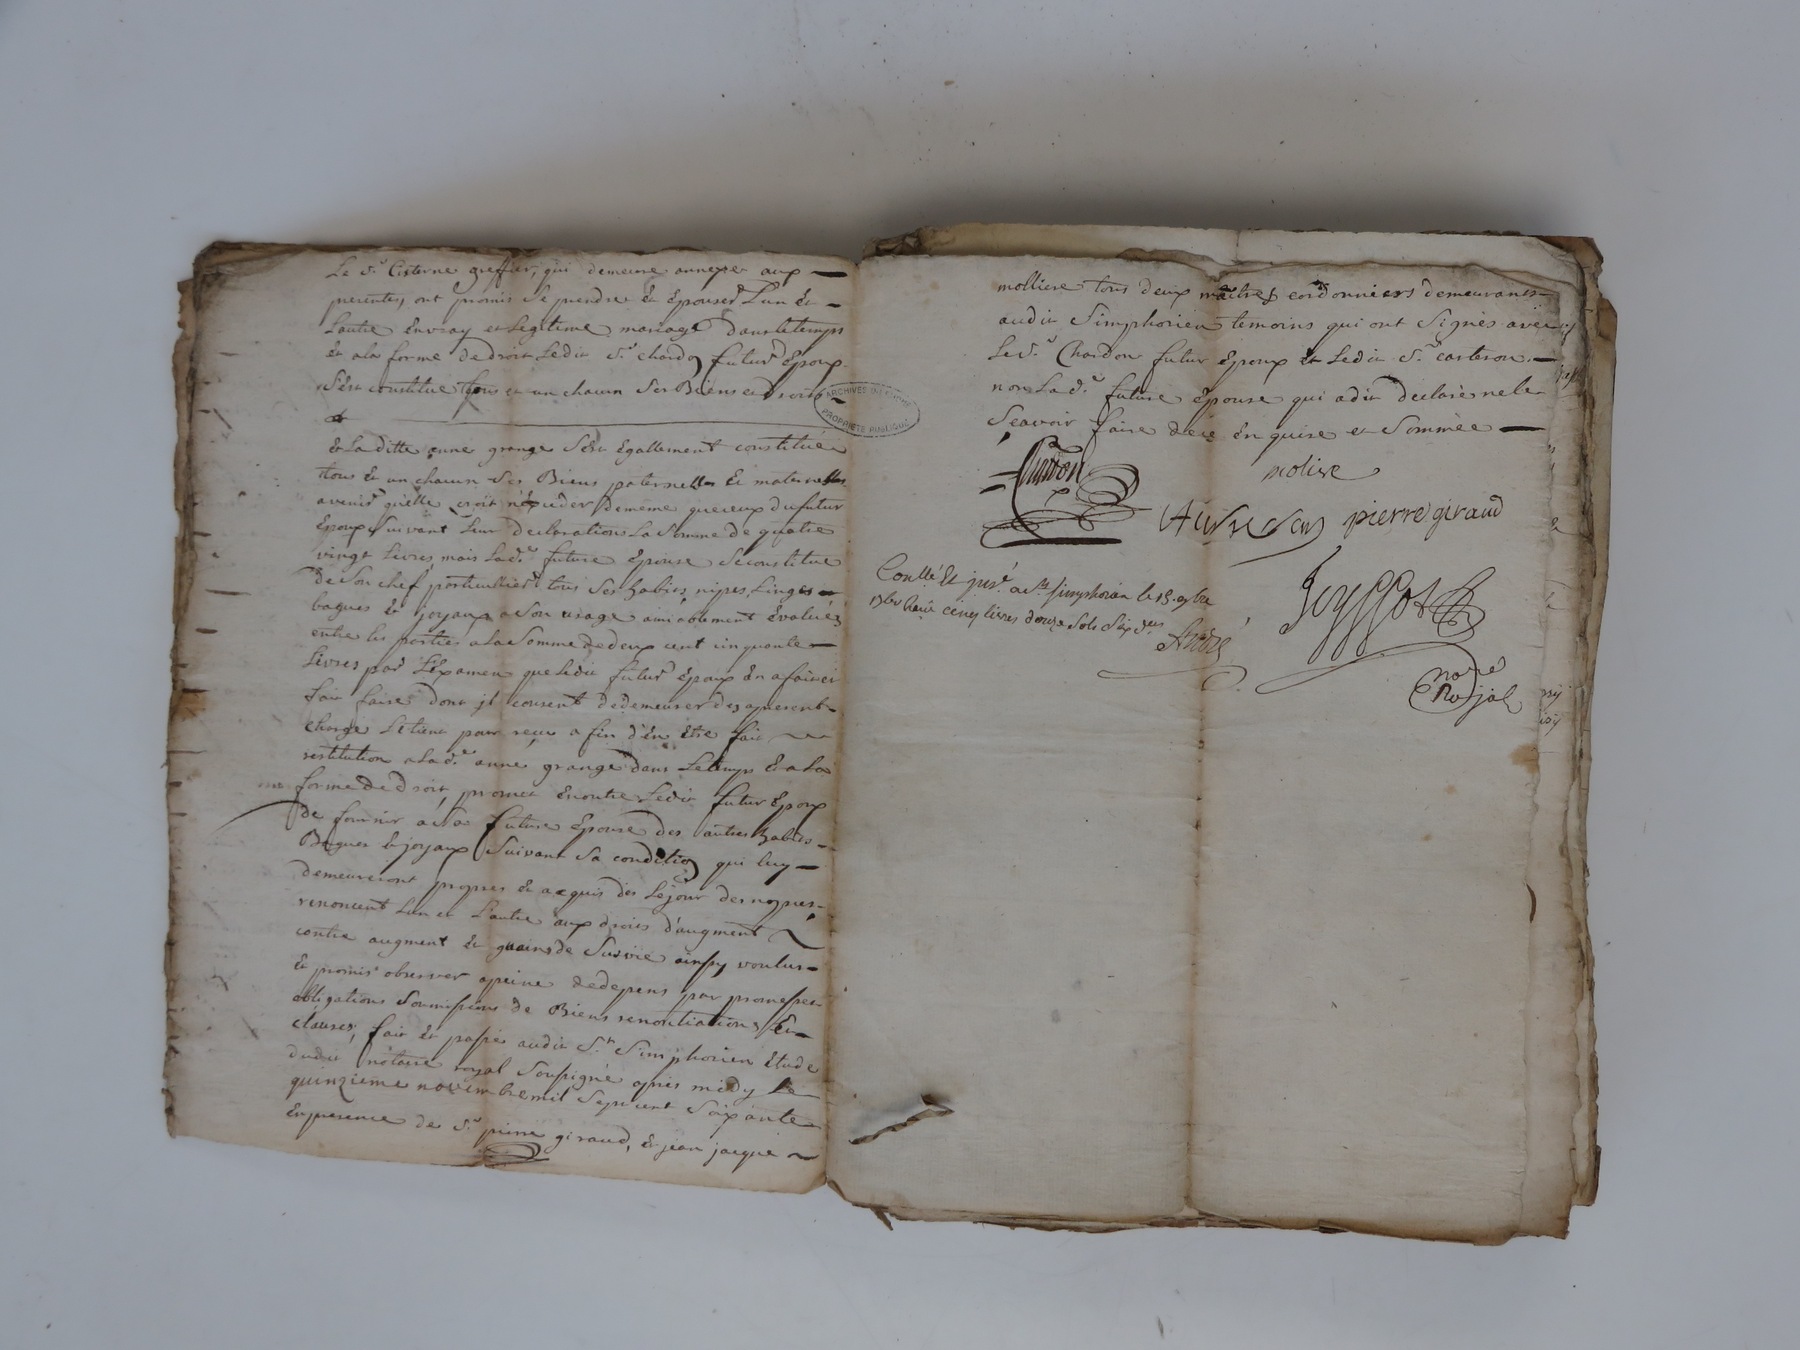 Le s.r Cisterne greffier, qui demeure annexée aux
presentes, ont promis se prendre et Epouser L'un et
Lautre En vray et Legitime mariage dans le temps
et a la forme de droit Ledit s.r chardon futur Epoux
s'est constitué tous et un chacun ses Biens et droits
et La ditte anne grange s'est Egallement constitué
tous et un chacun ses Biens paternelles et maternelles
avenir qu'elle croit n'éxceder de meme que ceux du futur
Epoux suivant Leur declarations La somme de quatre
vingt Livres, mais La d.e future Epouse se constitue
de son chef particullier tous ses habits, nipes, Linges
bagues et joyaux a son usage amiablement Evalués
entre les parties a La somme de deux cent cinquante
Livres par L'Examen que Ledit futur Epoux En a fait et
fait faire dont il consent de demeurer des apresent
chargé Le tient pour reçu a fin d'En Etre fait
restitution a La d.e anne grange dans Le temps et a La
forme de droit, promet Enoutre Ledit futur Epoux
de fournir a sa future Epouse des autres habits
Bagues et joyaux suivant sa condition qui luy
demeureront propres et acquis dès Le jour des nopces
renoncent L'un et L'autre aux droits d'augment
contre augment et gains de survie ainsy voulus
et promis observer a peine de depens par promesses
obligations soumissions de Biens renontiations et
clauses, fait et passé audit S.t Simphorien Etude
dudit notaire royal soussigné après midy Le
quinzieme novembre mil sept cent soixante
En presence de s.r pierre giraud, et jean jacque
molliere tous deux maîtres cordonniers demeurants
audit Simphorien temoins qui ont signés avec
Le s.r Chardon futur Epoux et Ledit s.r casteron
non La d.e future Epouse qui a dit declaré ne le
sçavoir faire de ce En quise et sommée
ARCHIVES
PROPRIETE PUBLIQUE
Chardon
molire
pierre giraud
Con.llé et jns.é a S.t simphorien le 15. 9bre
1760 Reçu cinq livres douze sols six d.ers
André
Jeyssot
no.re
Royal